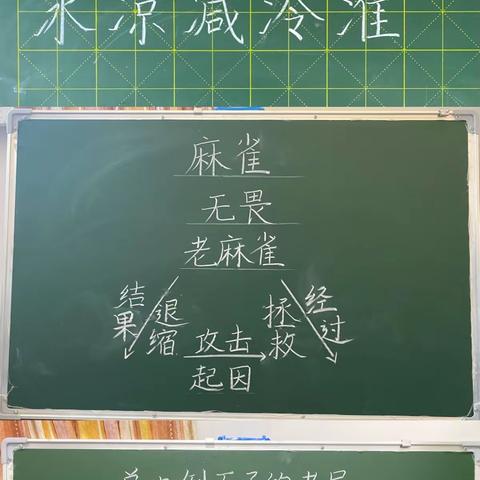 冰凉减冷准
麻雀
无畏
老麻雀
结果
退缩
拯救
经过
攻击
起因